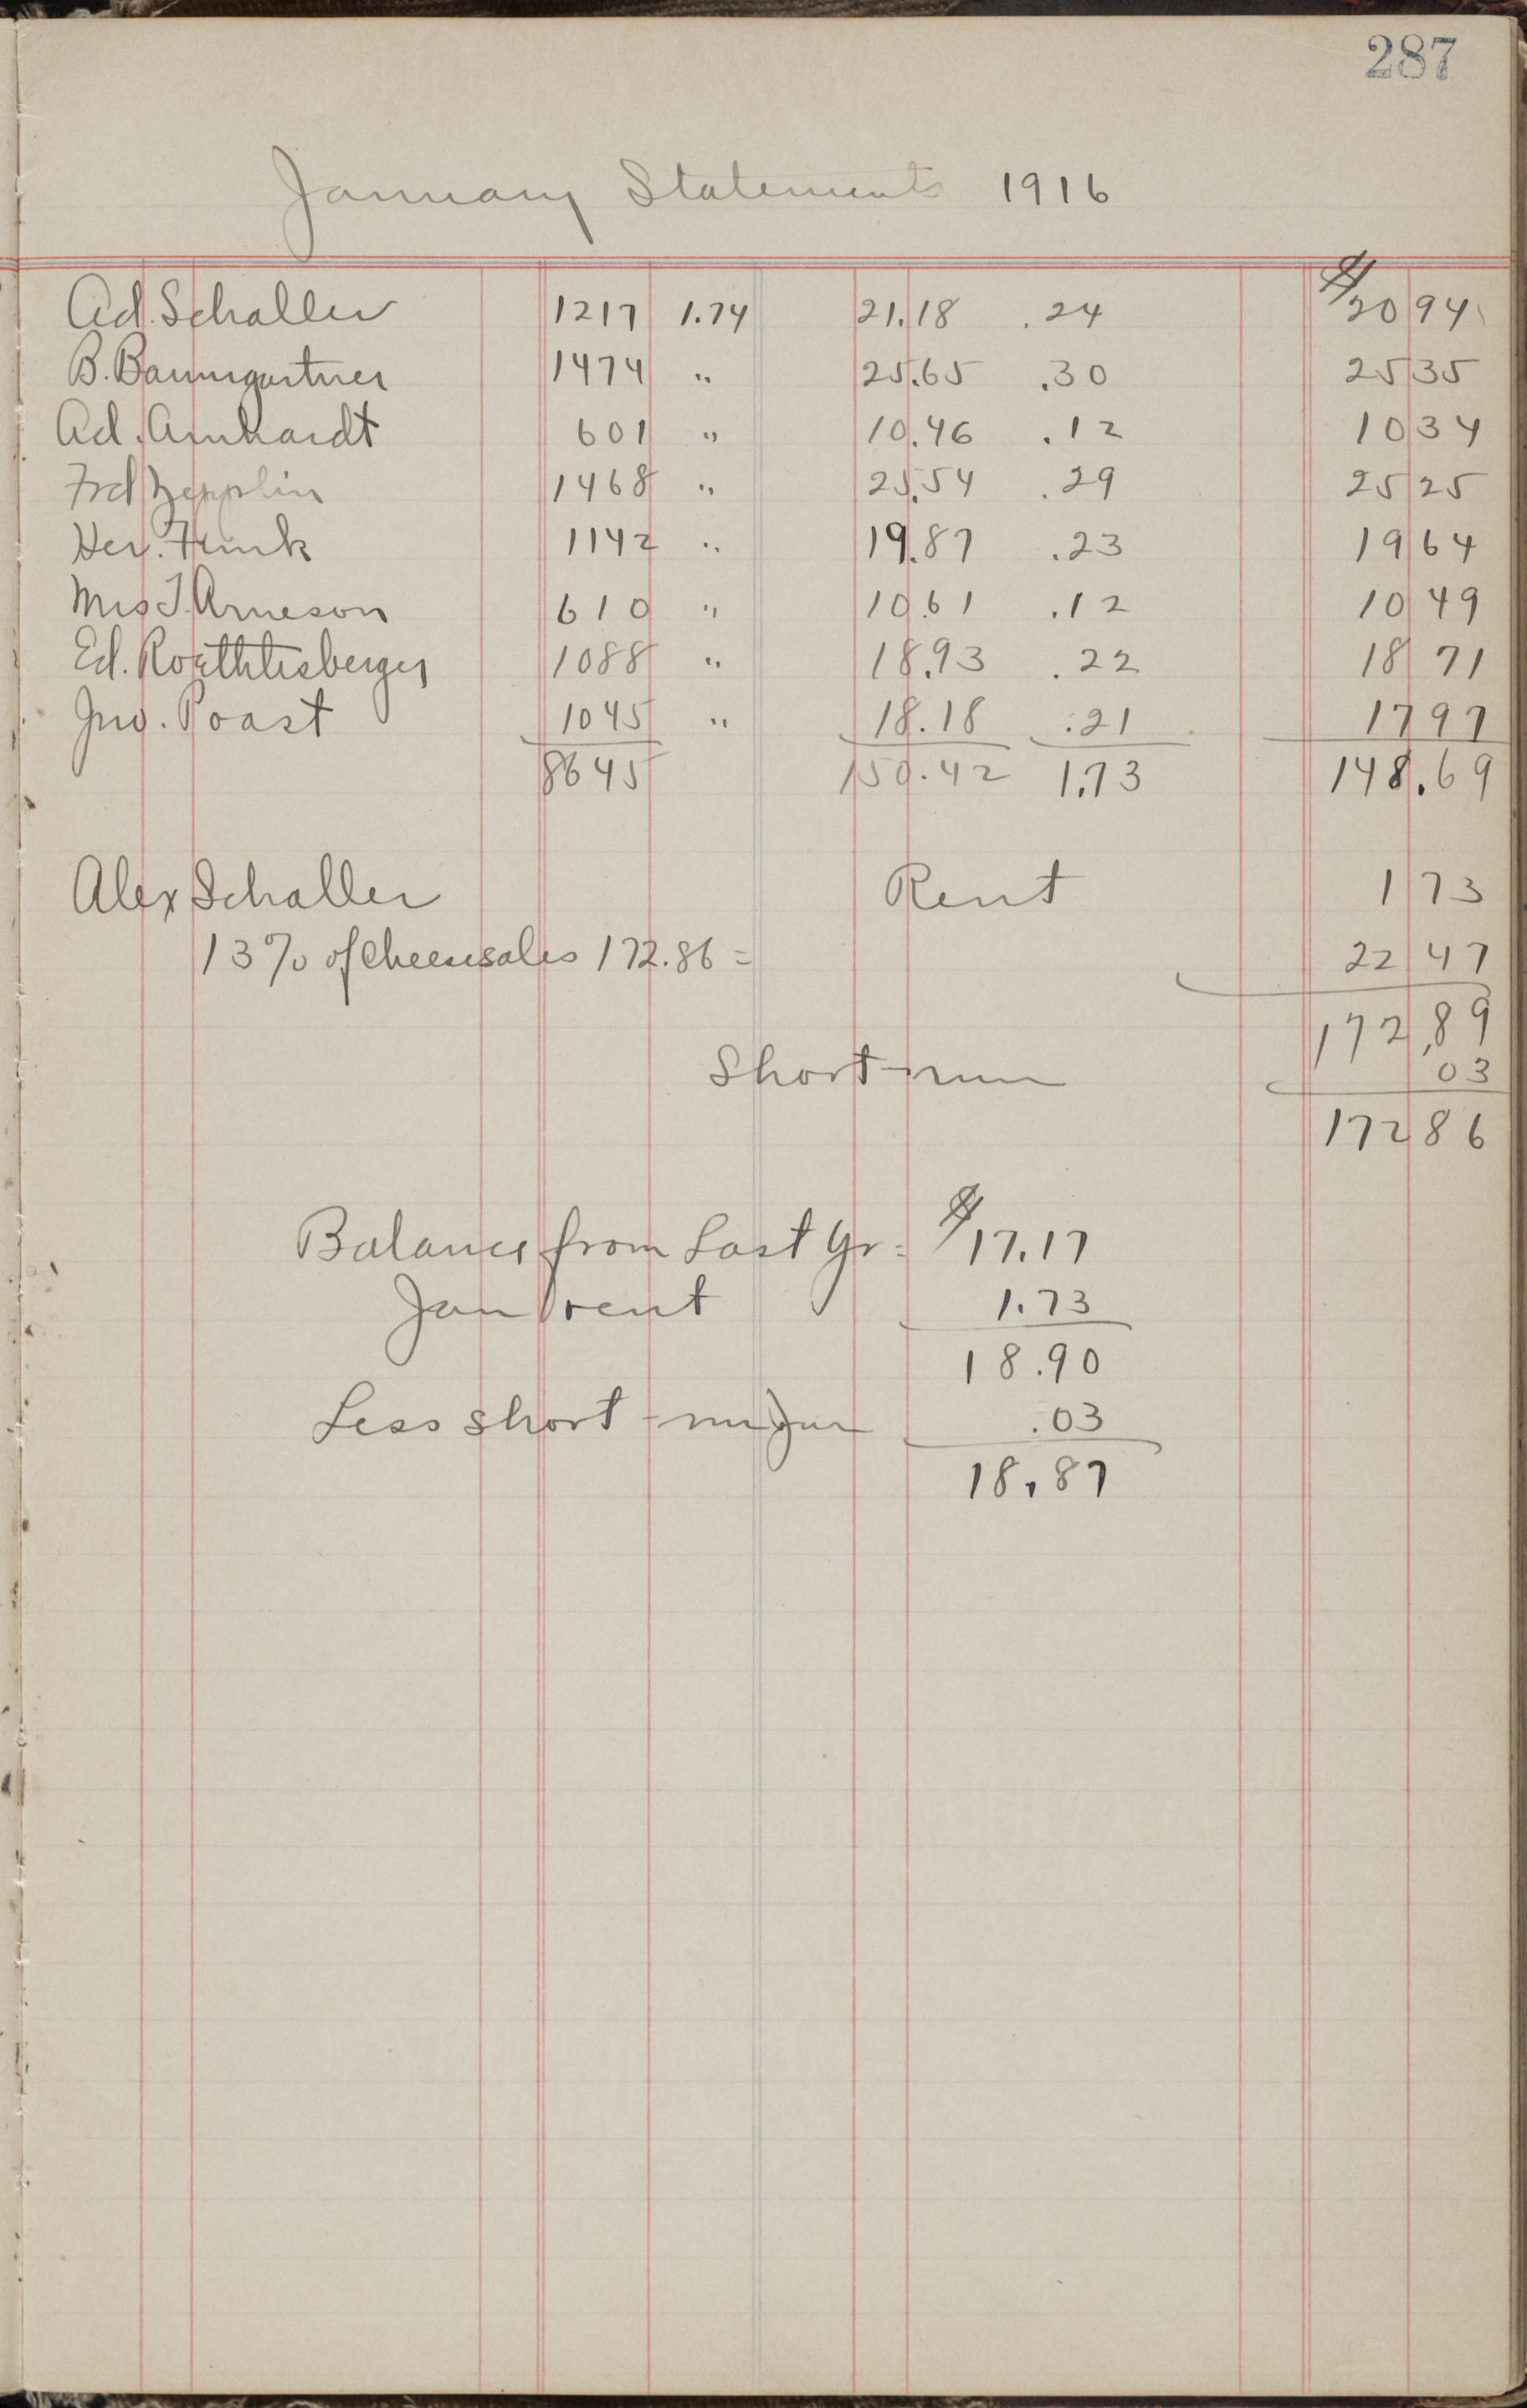 287
January Statements 1916
Ad. Schaller 1217 1.74 21.18 .24 $20 94
B. Baumgartner 1474 " 25.65 .30 25 35
Ad. Arnhardt 601 " 10.46 .12 10 34
Frd Zepplin 1468 " 25.54 .29 25 25
Her. Funk 1142 " 19.87 .23 19 64
Mrs T. Arneson 610 " 10.61 .12 10 49
Ed. Roethlisberger 1088 " 18.93 .22 18 71
Jno. Poast 1045 " 18.18 .21 17 97
8645 150.42 1.73 148.69
Alex Schaller Rent 1 73
13% of Cheesesales 172.86 = 22 47
172.89
Short-run 03
172 86
Balance from Last Yr = $17.17
Jan rent 1.73
18.90
Less short - .03
18.87